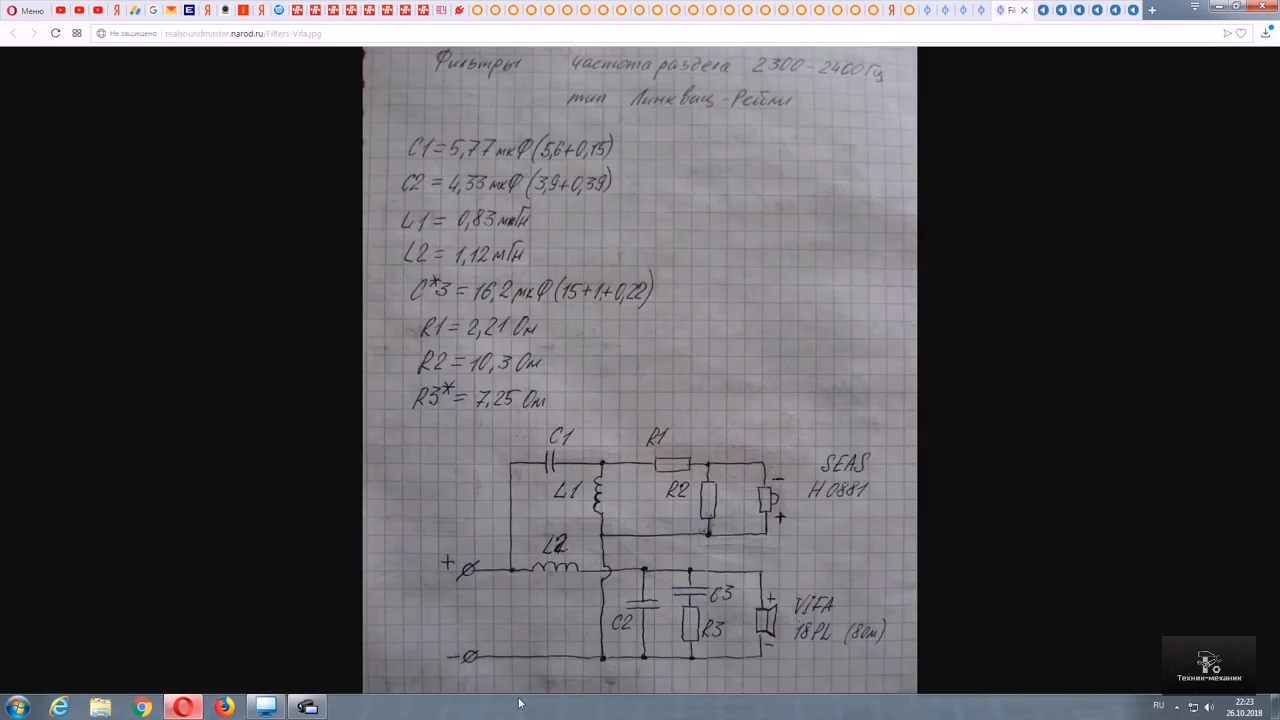 Меню
Fil
Не защищено realsoundmaster.narod.ru/Filters-Vifa.jpg
Фильтры частота раздела 2300-2400Гц
тип Линквиц-Рейли
C1 = 5,77мкФ (5,6+0,15)
C2 = 4,33мкФ (3,9+0,39)
L1 = 0,83мГн
L2 = 1,12мГн
C*3 = 16,2мкФ (15+1+0,22)
R1 = 2,21 Ом
R2 = 10,3 Ом
R3* = 7,25 Ом
C1 R1
SEAS
L1 R2 - H0881
+
L2
+
C3 +
VIFA
C2 R3 18PL (8Ом)
-
-
Техник-механик
RU 22:23
26.10.2018